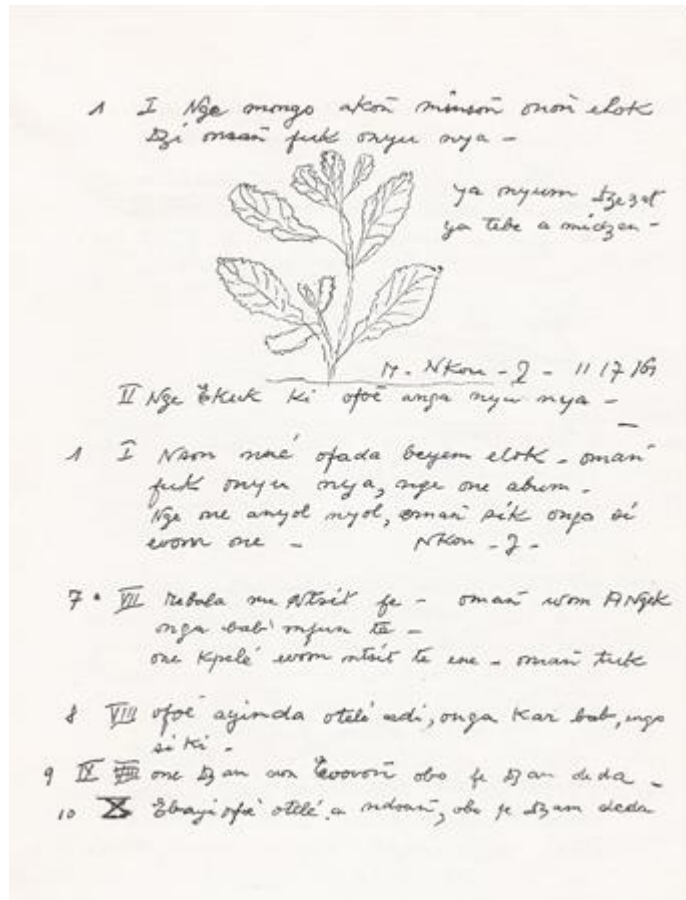 1 I Nge mongo akoñ minsoñ onoñ elok
Dzi omañ fuk onyu nya –
ya nyum
ya tebe a midzen –
M. Nkou – J – 11/7/61
II Nge Ekuk ki ofoé anga nyu nya –
1 I Nson niné ofada beyem elok – omañ
fuk onyu nya, nge one abum –
Nge one anyol nyol, omañ sik onga si
evom one – Nkou – J –
7 • VII mebala me Ntsit fe – omañ wom
onga babi mfun te –
one kpelé evom ntsit te ene – omañ tuk
8 VIII ofoé ayinda otelé adi, onga kar bab,
si ki –
9 IX one Dzam obo fe Dzam deda –
10 X ofoé otelé a ndoañ, obo fe Dzam deda